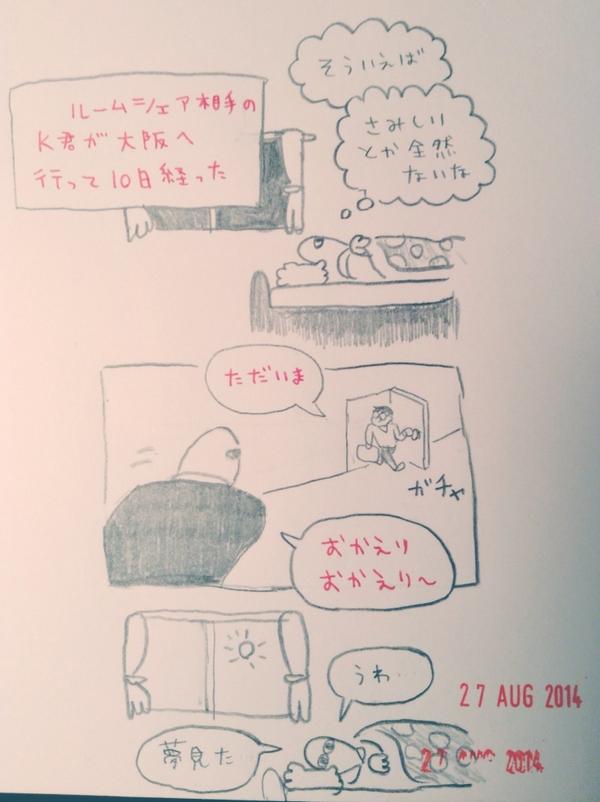 ルームシェア相手の
K君が大阪へ
行って10日経った
そういえば
さみしい
とか全然
ないな
ただいま
ガチャ
おかえり
おかえり〜
うわ…
夢見た…
27 AUG 2014
27 AUG 2014